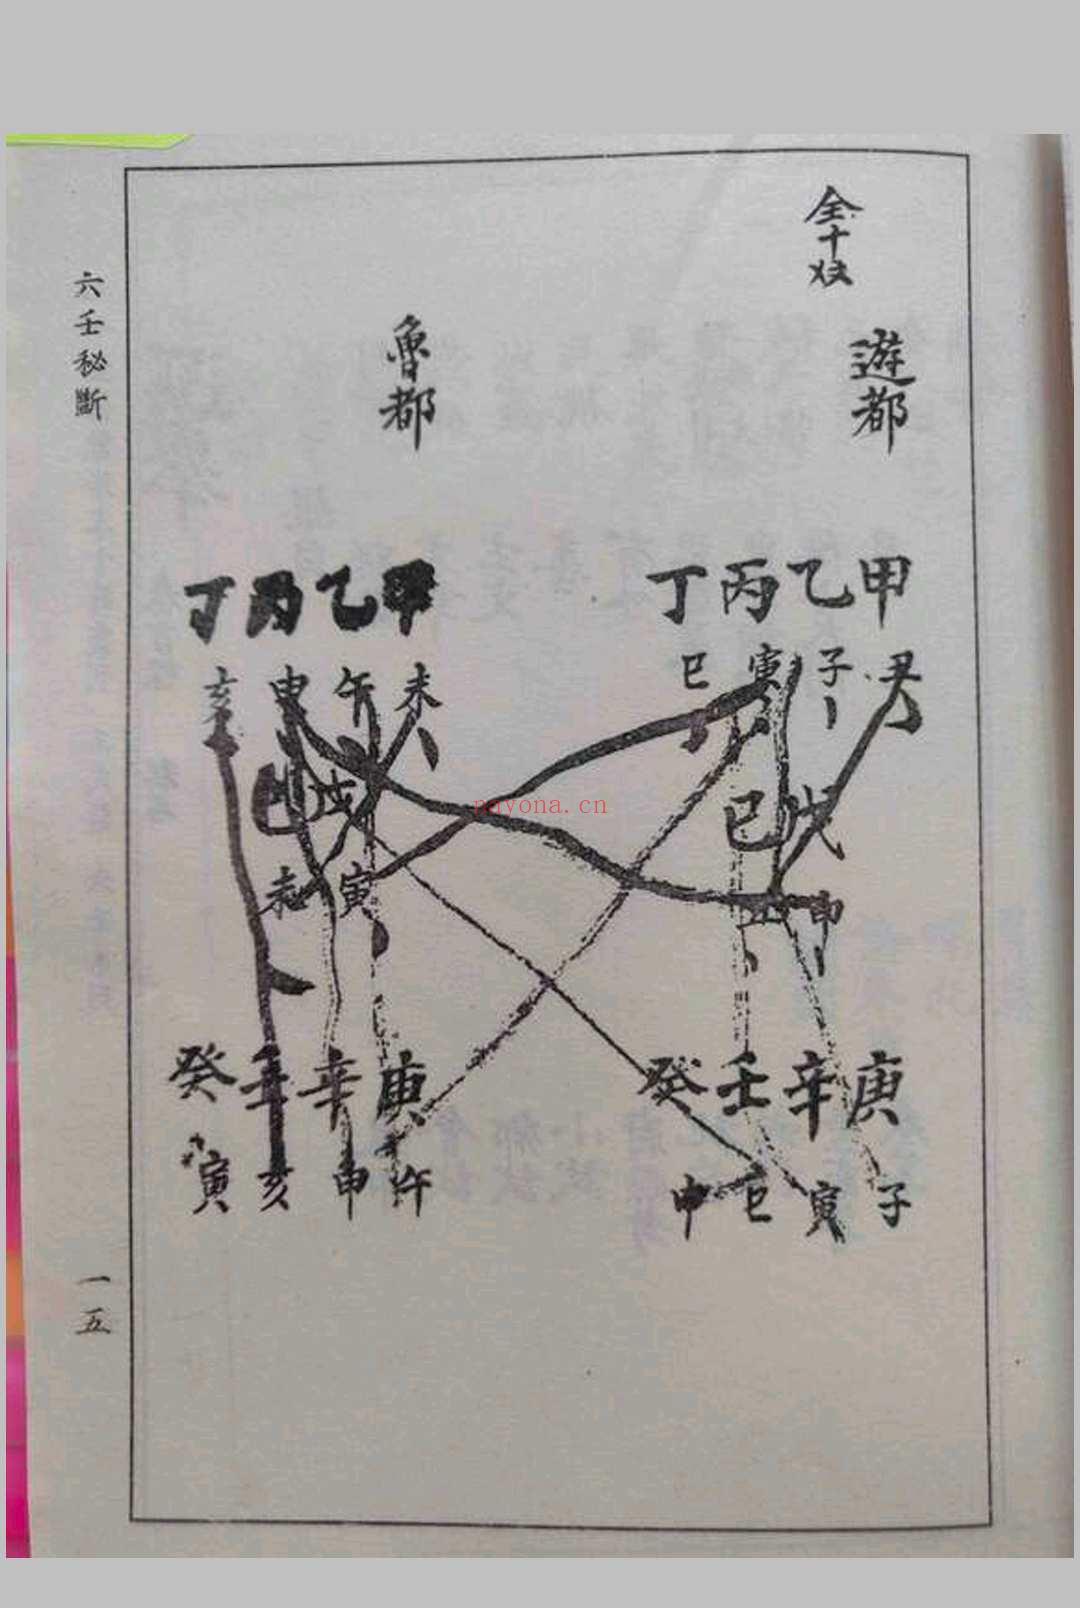 仝十狀
遊都
甲乙丙丁
丑子寅巳
戊己
卯丑
庚辛壬癸
子寅巳申
魯都
甲乙丙丁
未午申亥
戊己
寅未
庚辛壬癸
午申亥寅
六壬秘斷
一五
nayona.cn